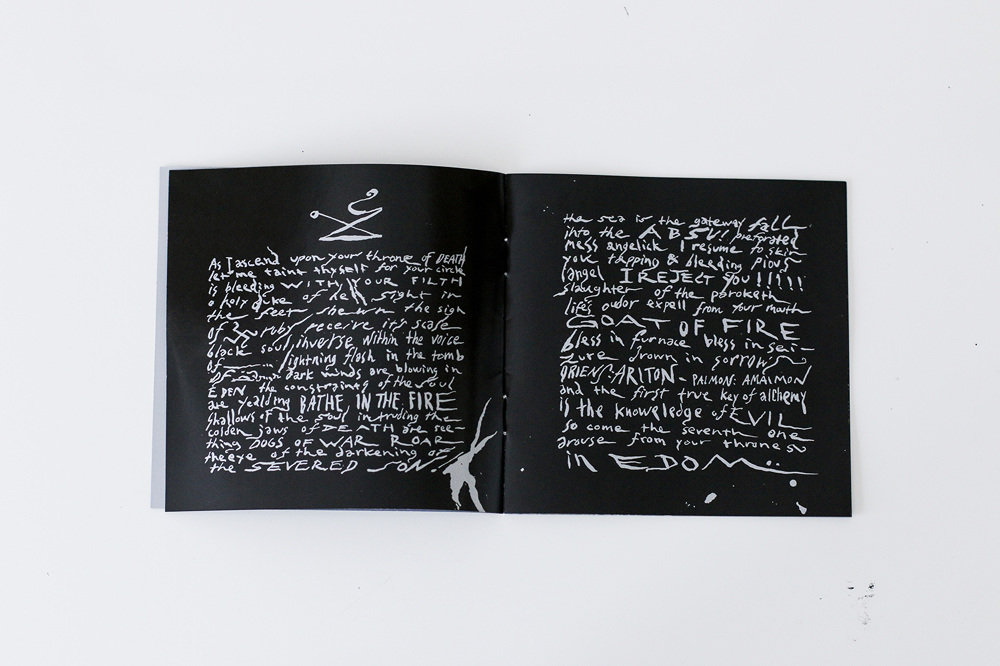 As I ascend upon your throne of DEATH
let me taint thyself for your circle
is bleeding WITH YOUR FILTH
a holy of hell sight in
the feet the sign
of ruby receive it's scale
black soul inverse within the voice
of lightning flash in the tomb
of dark winds are blowing in
EDEN the constraints of the soul
are BATHE IN THE FIRE
shallows of the soul intruding the
golden jaws of DEATH are see-
thing DOGS OF WAR ROAR
the eye of the darkening of
the SEVERED SON
the sea is the gateway fall
into the ABSU!
mess angelick I resume to skin
you bleeding pious
angel I REJECT YOU!!!!!
slaughter of the paroketh
life's expell from your mouth
GOAT OF FIRE
bless in furnace bless in sei-
zure drown in sorrow
ORIENS: ARITON - PAIMON: AMAIMON
and the first true key of alchemy
is the knowledge of EVIL
so come the seventh one
arouse from your throne so
in EDOM..